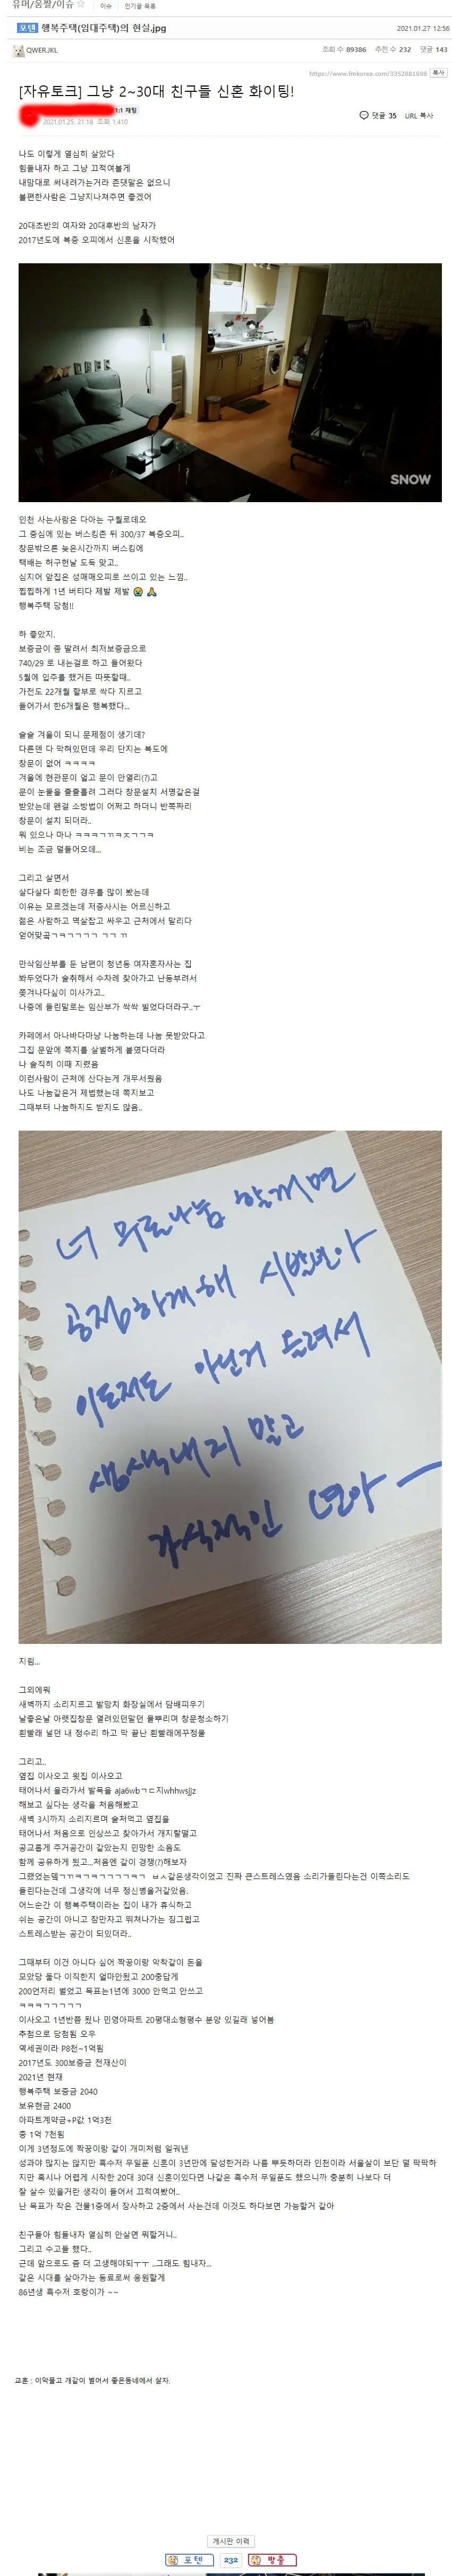 유머/움짤/이슈 ☆ 이슈 인기글 목록
포텐 행복주택(임대주택)의 현실.jpg 2021.01.27 12:56
QWERJKL 조회 수 89386 추천 수 232 댓글 143
https://www.fmkorea.com/3352881698 복사
[자유토크] 그냥 2~30대 친구들 신혼 화이팅!
1:1 채팅
2021.01.25. 21:18 조회 1,410 댓글 35 URL 복사
나도 이렇게 열심히 살았다
힘들내자 하고 그냥 끄적여볼게
내맘대로 써내려가는거라 존댓말은 없으니
불편한사람은 그냥지나쳐주면 좋겠어
20대초반의 여자와 20대후반의 남자가
2017년도에 복층 오피에서 신혼을 시작했어
SNOW
인천 사는사람은 다아는 구월로데오
그 중심에 있는 버스킹존 뒤 300/37 복층오피..
창문밖으론 늦은시간까지 버스킹에
택배는 허구헌날 도둑 맞고..
심지어 앞집은 성매매오피로 쓰이고 있는 느낌..
찝찝하게 1년 버티다 제발 제발 😭 🙏
행복주택 당첨!!
하 좋았지.
보증금이 좀 딸려서 최저보증금으로
740/29 로 내는걸로 하고 들어왔다
5월에 입주를 했거든 따뜻할때..
가전도 22개월 할부로 싹다 지르고
들어가서 한6개월은 행복했다...
슬슬 겨울이 되니 문제점이 생기데?
다른덴 다 막혀있던데 우리 단지는 복도에
창문이 없어 ㅋㅋㅋㅋ
겨울에 현관문이 얼고 문이 안열리(?)고
문이 눈물을 줄줄흘려 그러다 창문설치 서명같은걸
받았는데 왠걸 소방법이 어쩌고 하더니 반쪽짜리
창문이 설치 되더라..
뭐 있으나 마나 ㅋㅋㅋㄱㄲㅋㅈㄱㄱㅋ
비는 조금 덜들어오데...
그리고 살면서
살다살다 희한한 경우를 많이 봤는데
이유는 모르겠는데 저층사시는 어르신하고
젊은 사람하고 멱살잡고 싸우고 근처에서 말리다
얻어맞곸ㄱㅋㄱㄱㄱㄱ ㄱㄱ ㄲ
만삭임산부를 둔 남편이 청년동 여자혼자사는 집
봐두었다가 술취해서 수차례 찾아가고 난동부려서
쫓겨나다싶이 이사가고..
나중에 들린말로는 임산부가 싹싹 빌었다더라구..ㅜ
카페에서 아나바다마냥 나눔하는데 나눔 못받았다고
그집 문앞에 쪽지를 살벌하게 붙였다더라
나 솔직히 이때 지렸음
이런사람이 근처에 산다는게 개무서웠음
나도 나눔같은거 제법했는데 쪽지보고
그때부터 나눔하지도 받지도 않음..
너 무료나눔 할꺼면
공정하게해 시발년아
이도저도 아닌게 들려서
생색내지 말고
가식적인 년아 ㅡ
지림...
그외에뭐
새벽까지 소리지르고 발망치 화장실에서 담배피우기
날좋은날 아랫집창문 열려있던말던 물뿌리며 창문청소하기
흰빨래 널던 내 정수리 하고 막 끝난 흰빨래에꾸정물
그리고..
옆집 이사오고 윗집 이사오고
태어나서 올라가서 발목을 aja6wbㄱㄷ지whhwsjjz
해보고 싶다는 생각을 처음해봤고
새벽 3시까지 소리지르며 술처먹고 옆집을
태어나서 처음으로 인상쓰고 찾아가서 개지랄떨고
공교롭게 주거공간이 같았는지 민망한 소음도
함께 공유하게 됬고...처음엔 같이 경쟁(?)해보자
그랬었는뎈ㄱㄲㅋㄱㅋㄱㄱㄱㄱㅋㄱ ㅂㅅ같은생각이었고 진짜 큰스트레스였음 소리가들린다는건 이쪽소리도
들린다는건데 그생각에 너무 정신병올거같았음.
어느순간 이 행복주택이라는 집이 내가 휴식하고
쉬는 공간이 아니고 잠만자고 뛰쳐나가는 징그럽고
스트레스받는 공간이 되있더라..
그때부터 이건 아니다 싶어 짝꿍이랑 악착같이 돈을
모았당 둘다 이직한지 얼마안됬고 200충답게
200언저리 벌었고 목표는1년에 3000 안먹고 안쓰고
ㅋㅋㅋㄱㄱㄱㄱㄱ
이사오고 1년반쯤 됬나 민영아파트 20평대소형평수 분양 있길래 넣어봄
추첨으로 당첨됨 오우
역세권이라 P8천~1억됨
2017년도 300보증금 전재산이
2021년 현재
행복주택 보증금 2040
보유현금 2400
아파트계약금+P값 1억3천
총 1억 7천됨
이게 3년정도에 짝꿍이랑 같이 개미처럼 일궈낸
성과야 많지는 않지만 흑수저 무일푼 신혼이 3년만에 달성한거라 나름 뿌듯하더라 인천이라 서울살이 보단 덜 팍팍하
지만 혹시나 어렵게 시작한 20대 30대 신혼이있다면 나같은 흑수저 무일푼도 했으니까 충분히 나보다 더
잘 살수 있을거란 생각이 들어서 끄적여봤어..
난 목표가 작은 건물1층에서 장사하고 2층에서 사는건데 이것도 하다보면 가능할거 같아
친구들아 힘들내자 열심히 안살면 뭐할거니..
그리고 수고들 했다..
근데 앞으로도 좀 더 고생해야되ㅜㅜ ..그래도 힘내자...
같은 시대를 살아가는 동료로써 응원할게
86년생 흑수저 호랑이가 ~~
교훈 : 이악물고 개같이 벌어서 좋은동네에서 살자.
게시판 이력
포텐 232 방출